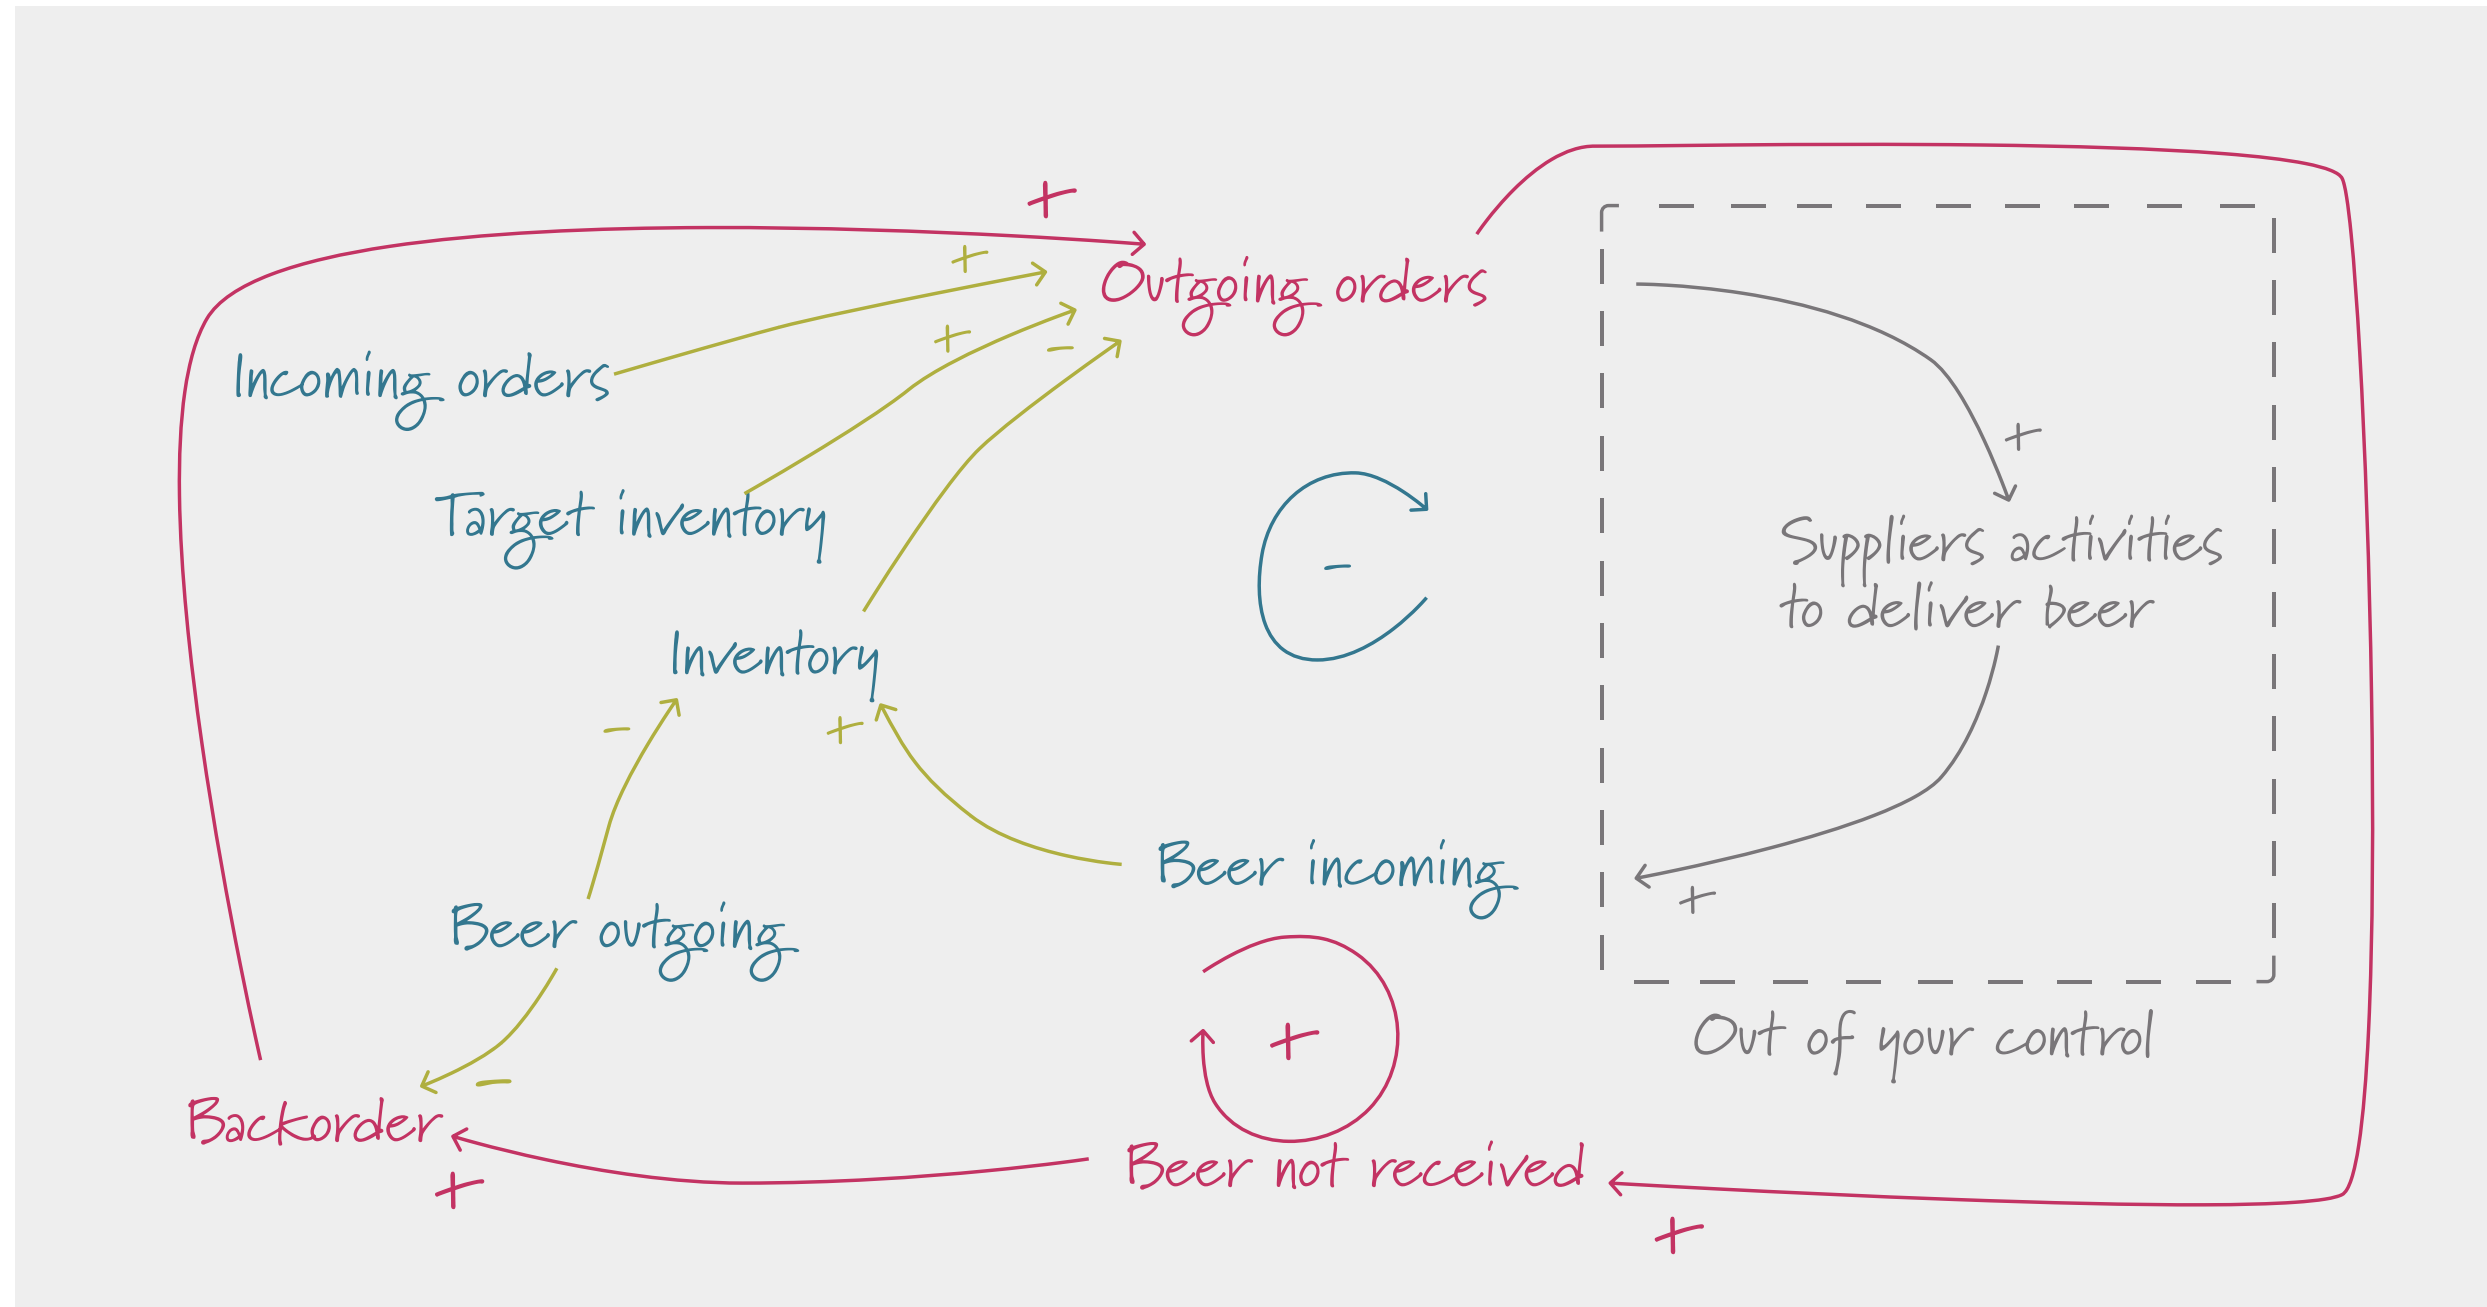 +
+
Outgoing orders
+
-
Incoming orders
+
Target inventory
Suppliers activities
to deliver beer
-
Inventory
-
+
Beer incoming
+
Beer outgoing
+
Out of your control
-
Backorder
Beer not received
+
+